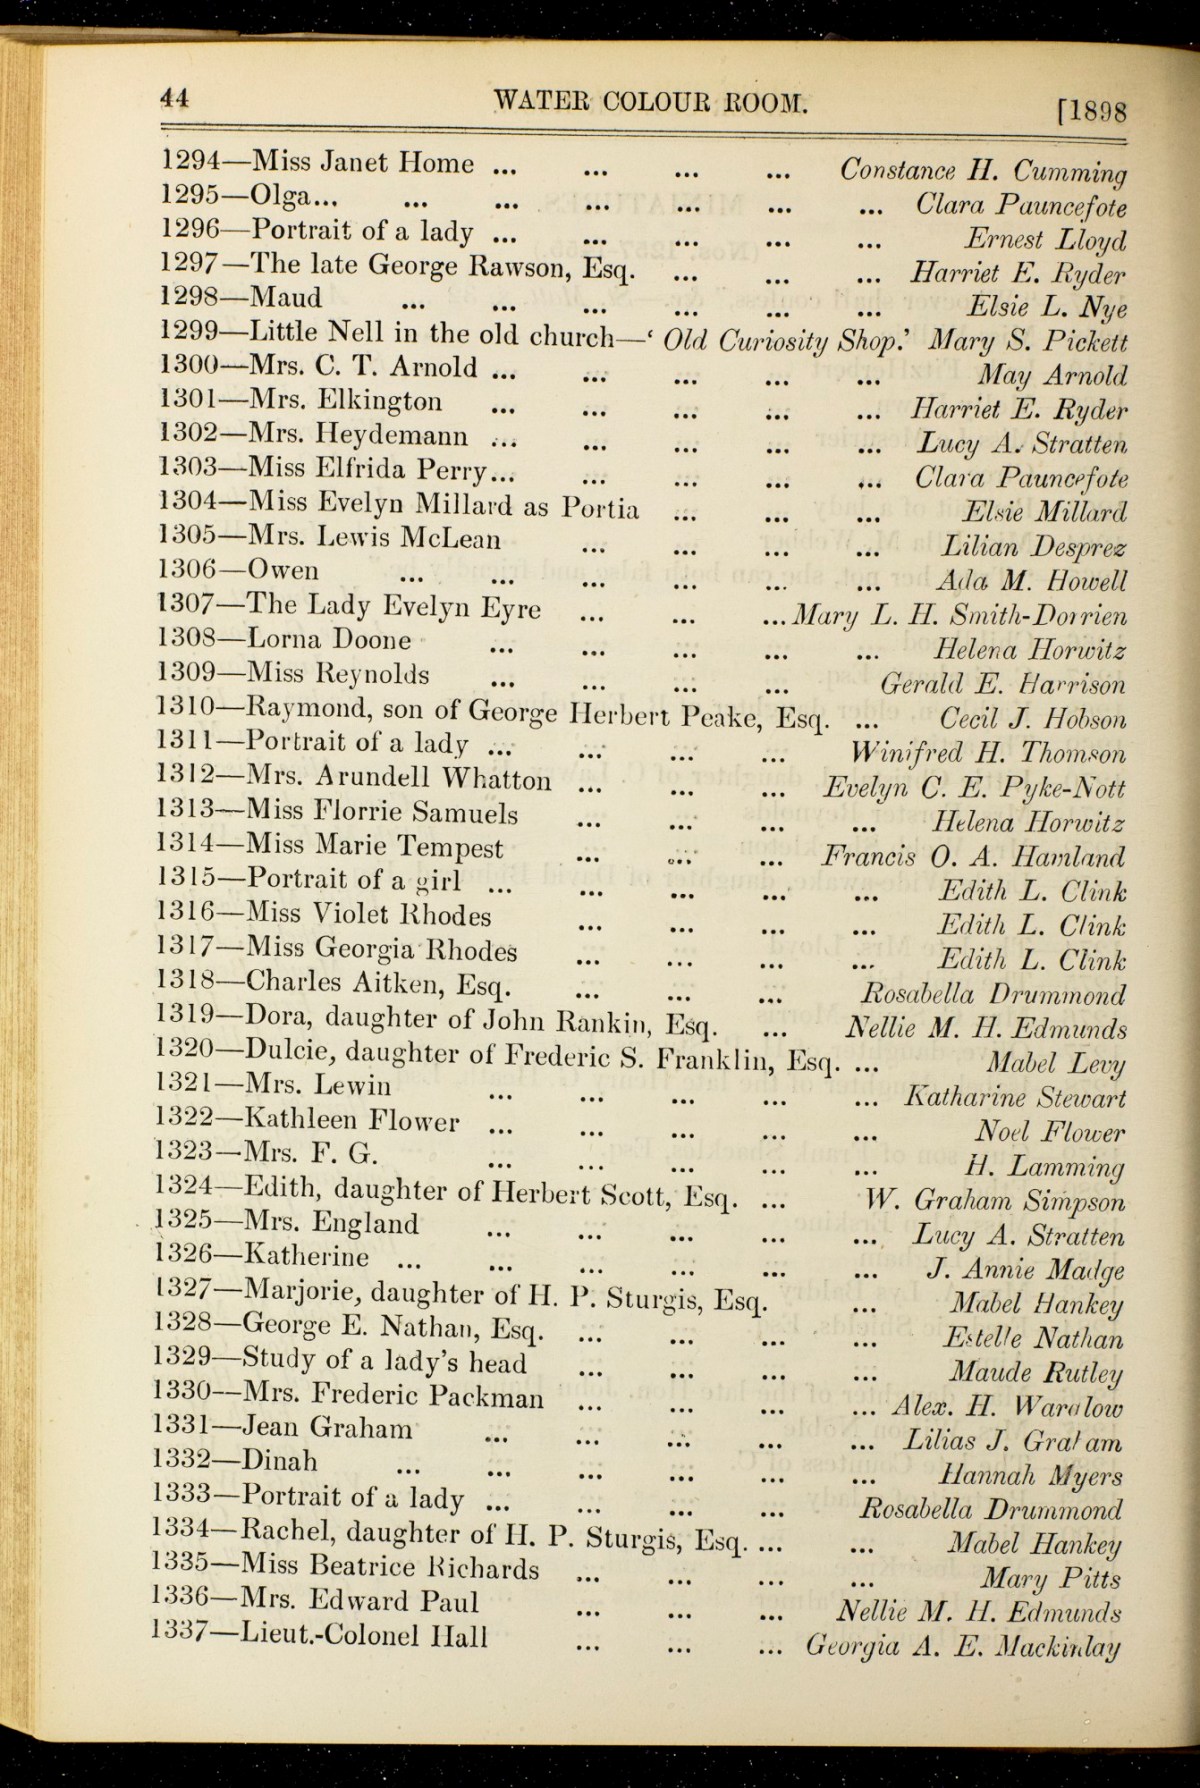 44 WATER COLOUR ROOM. [1898
1294—Miss Janet Home ... ... ... ... Constance H. Cumming
1295—Olga... ... ... ... ... ... ... Clara Pauncefote
1296—Portrait of a lady ... ... ... ... ... Ernest Lloyd
1297—The late George Rawson, Esq. ... ... ... Harriet E. Ryder
1298—Maud ... ... ... ... ... ... Elsie L. Nye
1299—Little Nell in the old church—‘ Old Curiosity Shop.’ Mary S. Pickett
1300—Mrs. C. T. Arnold ... ... ... ... ... May Arnold
1301—Mrs. Elkington ... ... ... ... ... Harriet E. Ryder
1302—Mrs. Heydemann ... ... ... ... ... Lucy A. Stratten
1303—Miss Elfrida Perry... ... ... ... ... Clara Pauncefote
1304—Miss Evelyn Millard as Portia ... ... ... Elsie Millard
1305—Mrs. Lewis McLean ... ... ... ... Lilian Desprez
1306—Owen ... ... ... ... ... ... Ada M. Howell
1307—The Lady Evelyn Eyre ... ... ... Mary L. H. Smith-Dorrien
1308—Lorna Doone ... ... ... ... ... Helena Horwitz
1309—Miss Reynolds ... ... ... ... Gerald E. Harrison
1310—Raymond, son of George Herbert Peake, Esq. ... Cecil J. Hobson
1311—Portrait of a lady ... ... ... ... Winifred H. Thomson
1312—Mrs. Arundell Whatton ... ... ... Evelyn C. E. Pyke-Nott
1313—Miss Florrie Samuels ... ... ... ... Helena Horwitz
1314—Miss Marie Tempest ... ... ... Francis O. A. Hamland
1315—Portrait of a girl ... ... ... ... ... Edith L. Clink
1316—Miss Violet Rhodes ... ... ... ... Edith L. Clink
1317—Miss Georgia Rhodes ... ... ... ... Edith L. Clink
1318—Charles Aitken, Esq. ... ... ... Rosabella Drummond
1319—Dora, daughter of John Rankin, Esq. ... Nellie M. H. Edmunds
1320—Dulcie, daughter of Frederic S. Franklin, Esq. ... Mabel Levy
1321—Mrs. Lewin ... ... ... ... ... Katharine Stewart
1322—Kathleen Flower ... ... ... ... ... Noel Flower
1323—Mrs. F. G. ... ... ... ... ... H. Lamming
1324—Edith, daughter of Herbert Scott, Esq. ... W. Graham Simpson
1325—Mrs. England ... ... ... ... ... Lucy A. Stratten
1326—Katherine ... ... ... ... ... ... J. Annie Madge
1327—Marjorie, daughter of H. P. Sturgis, Esq. ... Mabel Hankey
1328—George E. Nathan, Esq. ... ... ... ... Estelle Nathan
1329—Study of a lady's head ... ... ... ... Maude Rutley
1330—Mrs. Frederic Packman ... ... ... Alex. H. Warolow
1331—Jean Graham ... ... ... ... ... Lilias J. Graham
1332—Dinah ... ... ... ... ... ... Hannah Myers
1333—Portrait of a lady ... ... ... ... Rosabella Drummond
1334—Rachel, daughter of H. P. Sturgis, Esq. ... ... Mabel Hankey
1335—Miss Beatrice Richards ... ... ... ... Mary Pitts
1336—Mrs. Edward Paul ... ... ... Nellie M. H. Edmunds
1337—Lieut.-Colonel Hall ... ... ... Georgia A. E. Mackinlay